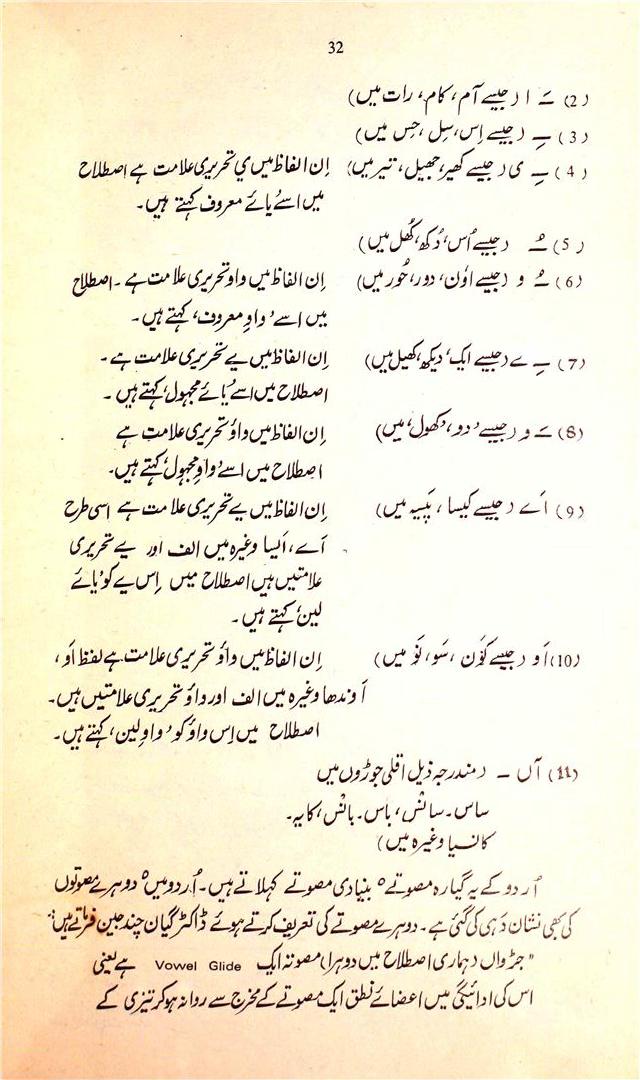 32
(2) ـَـ ا (جیسے آم، کام، رات میں)
(3) ـِـ (جیسے اِس، سِل، جِس میں)
(4) ـِـ ی (جیسے کھیر، جھیل، تیر میں) اِن الفاظ میں ی تحریری علامت ہے اصطلاح
میں اسے یائے معروف کہتے ہیں۔
(5) ـُـ (جیسے اُس، دُکھ، کُھل میں)
(6) ـُـ و (جیسے اُون، دور، حُور میں) اِن الفاظ میں واو تحریری علامت ہے۔ اصطلاح
میں اسے ’واوِ معروف‘ کہتے ہیں۔
(7) ـِـ ے (جیسے ایک، دیکھ، کھیل میں) اِن الفاظ میں یے تحریری علامت ہے۔
اصطلاح میں اسے ’یائے مجہول‘ کہتے ہیں۔
(8) ـَـ و (جیسے ’دو‘، ’کھول‘ میں) اِن الفاظ میں واؤ تحریری علامت ہے
اصطلاح میں اسے ’واوِ مجہول‘ کہتے ہیں۔
(9) اَے (جیسے کیسا، پَیسہ میں) اِن الفاظ میں یے تحریری علامت ہے اسی طرح
اَے، اَیسا وغیرہ میں الف اور یے تحریری
علامتیں ہیں اصطلاح میں اِس یے کو ’یائے
لین‘ کہتے ہیں۔
(10) اَو (جیسے کَوْن، سَو، نَو میں) اِن الفاظ میں واؤ تحریری علامت ہے لفظ اَو،
اَوندھا وغیرہ میں الف اور واؤ تحریری علامتیں ہیں۔
اصطلاح میں اِس واؤ کو ’واوِ لین‘ کہتے ہیں۔
(11) آں – (مندرجہ ذیل اقلی جوڑوں میں
ساس۔ سانس، باس۔ بانس، کایہ۔
کانسیا وغیرہ میں)
اُردو کے یہ گیارہ مصوتے بنیادی مصوتے کہلاتے ہیں۔ اُردو میں دوہرے مصوتوں
کی بھی نشان دہی کی گئی ہے۔ دوہرے مصوتے کی تعریف کرتے ہوئے ڈاکٹر گیان چند جین فرماتے ہیں:
"جڑواں (ہماری اصطلاح میں دوہرا) مصوتہ ایک Vowel Glide ہے یعنی
اس کی ادائیگی میں اعضائے نطق ایک مصوتے کے مخرج سے روانہ ہو کر تیزی کے